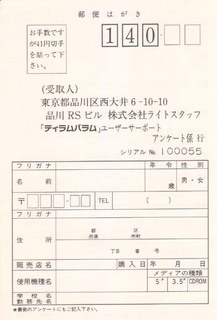 郵便はがき
お手数です
が41円切手
を貼って下
さい。
140
(受取人)
東京都品川区西大井6-10-10
品川RSビル 株式会社ライトスタッフ
「ティラムバラム」ユーザーサポート
アンケート係 行
シリアル№ 100055
フリガナ 年令 性別
名前 歳 男・女
〒 TEL ( )
フリガナ
住所 都道府県 市区町村
丁目 番 号
販売店名 購入日 年 月 日
使用機種名 メディアの種類
5" 3.5" CDROM
学校名
勤務先名
★裏面のアンケートにもご記入下さい。